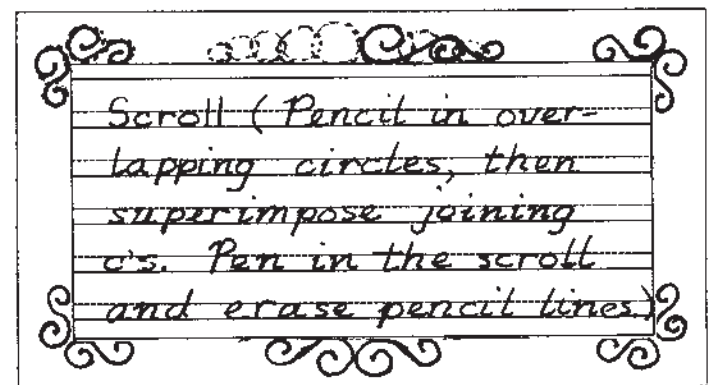 Scroll (Pencil in over-
lapping circles, then
superimpose joining
c's. Pen in the scroll
and erase pencil lines)